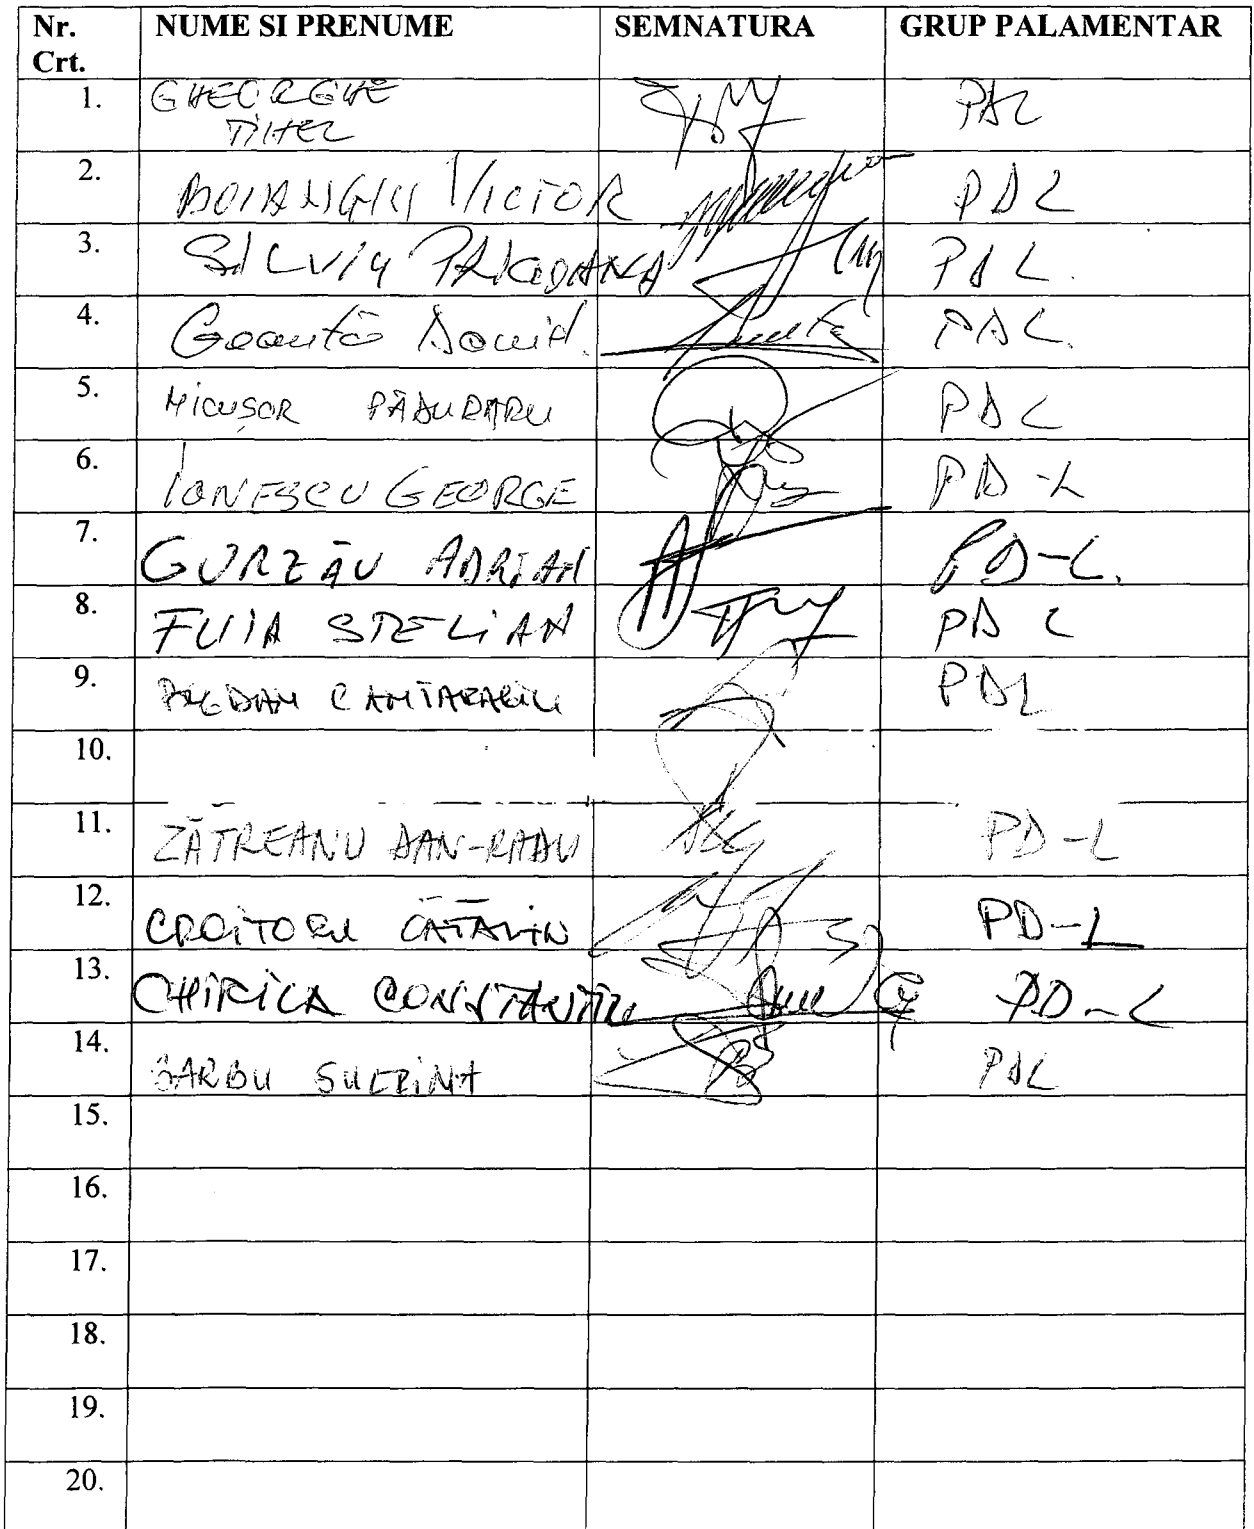 Nr. Crt. NUME SI PRENUME SEMNATURA GRUP PALAMENTAR
1. GHEORGHE TINEL PDL
2. BOIANGIU VICTOR PDL
3. SILVIU PRIGOANA PDL.
4. Geantă PDL.
5. MICUȘOR PĂDURARU PDL
6. IONESCU GEORGE PD-L
7. GURZĂU ADRIAN PD-L.
8. FUIA STELIAN PDL
9. BOGDAN CANTARAGIU PDL
10.
11. ZĂTREANU DAN-RADU PD-L
12. CROITORU CĂTĂLIN PD-L
13. CHIRILA CONSTANTIN PD-L
14. BARBU SULFINA PDL
15.
16.
17.
18.
19.
20.